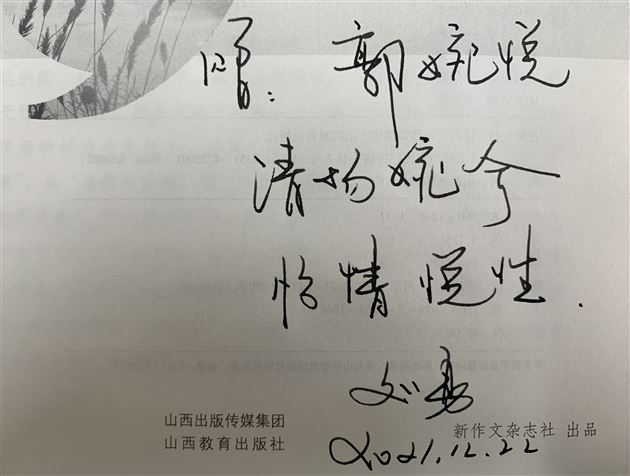 赠: 郭婉悦
清扬婉兮
怡情悦性.
山西出版传媒集团
山西教育出版社
新作文杂志社 出品
2021.12.22